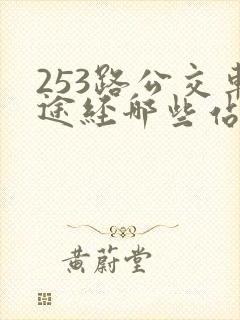 253路公交車
途經哪些佔
黄蔚堂